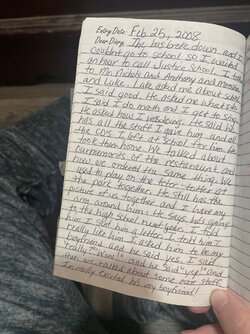 Entry Date: Feb 25, 2008
Dear Diary, The bus broke down and I
couldn't go to school so I waited
an hour to call Justice School. I talked
to Mr. Nichols and Anthony and
and Luke. Luke asked me about
I said good. He asked me what
I said I do math and I get to sing.
He asked how I was doing. He said he
has all the stuff I gave him and all
the CDS I left at school for him he
took them home. We talked about
our memories of the restaurant and
how we ordered the same thing. We
used to play on the teter-totter at
the park together. He still has the
picture of us together and I have my
arm around him. He says he's going
to the high school next year. I told
him I sent him a letter. I told him I
really like him. I asked him to be my
boyfriend and he said yes. I said
"really" and he said "yep" and
then we talked about some more stuff.
I'm really excited his my boyfriend!